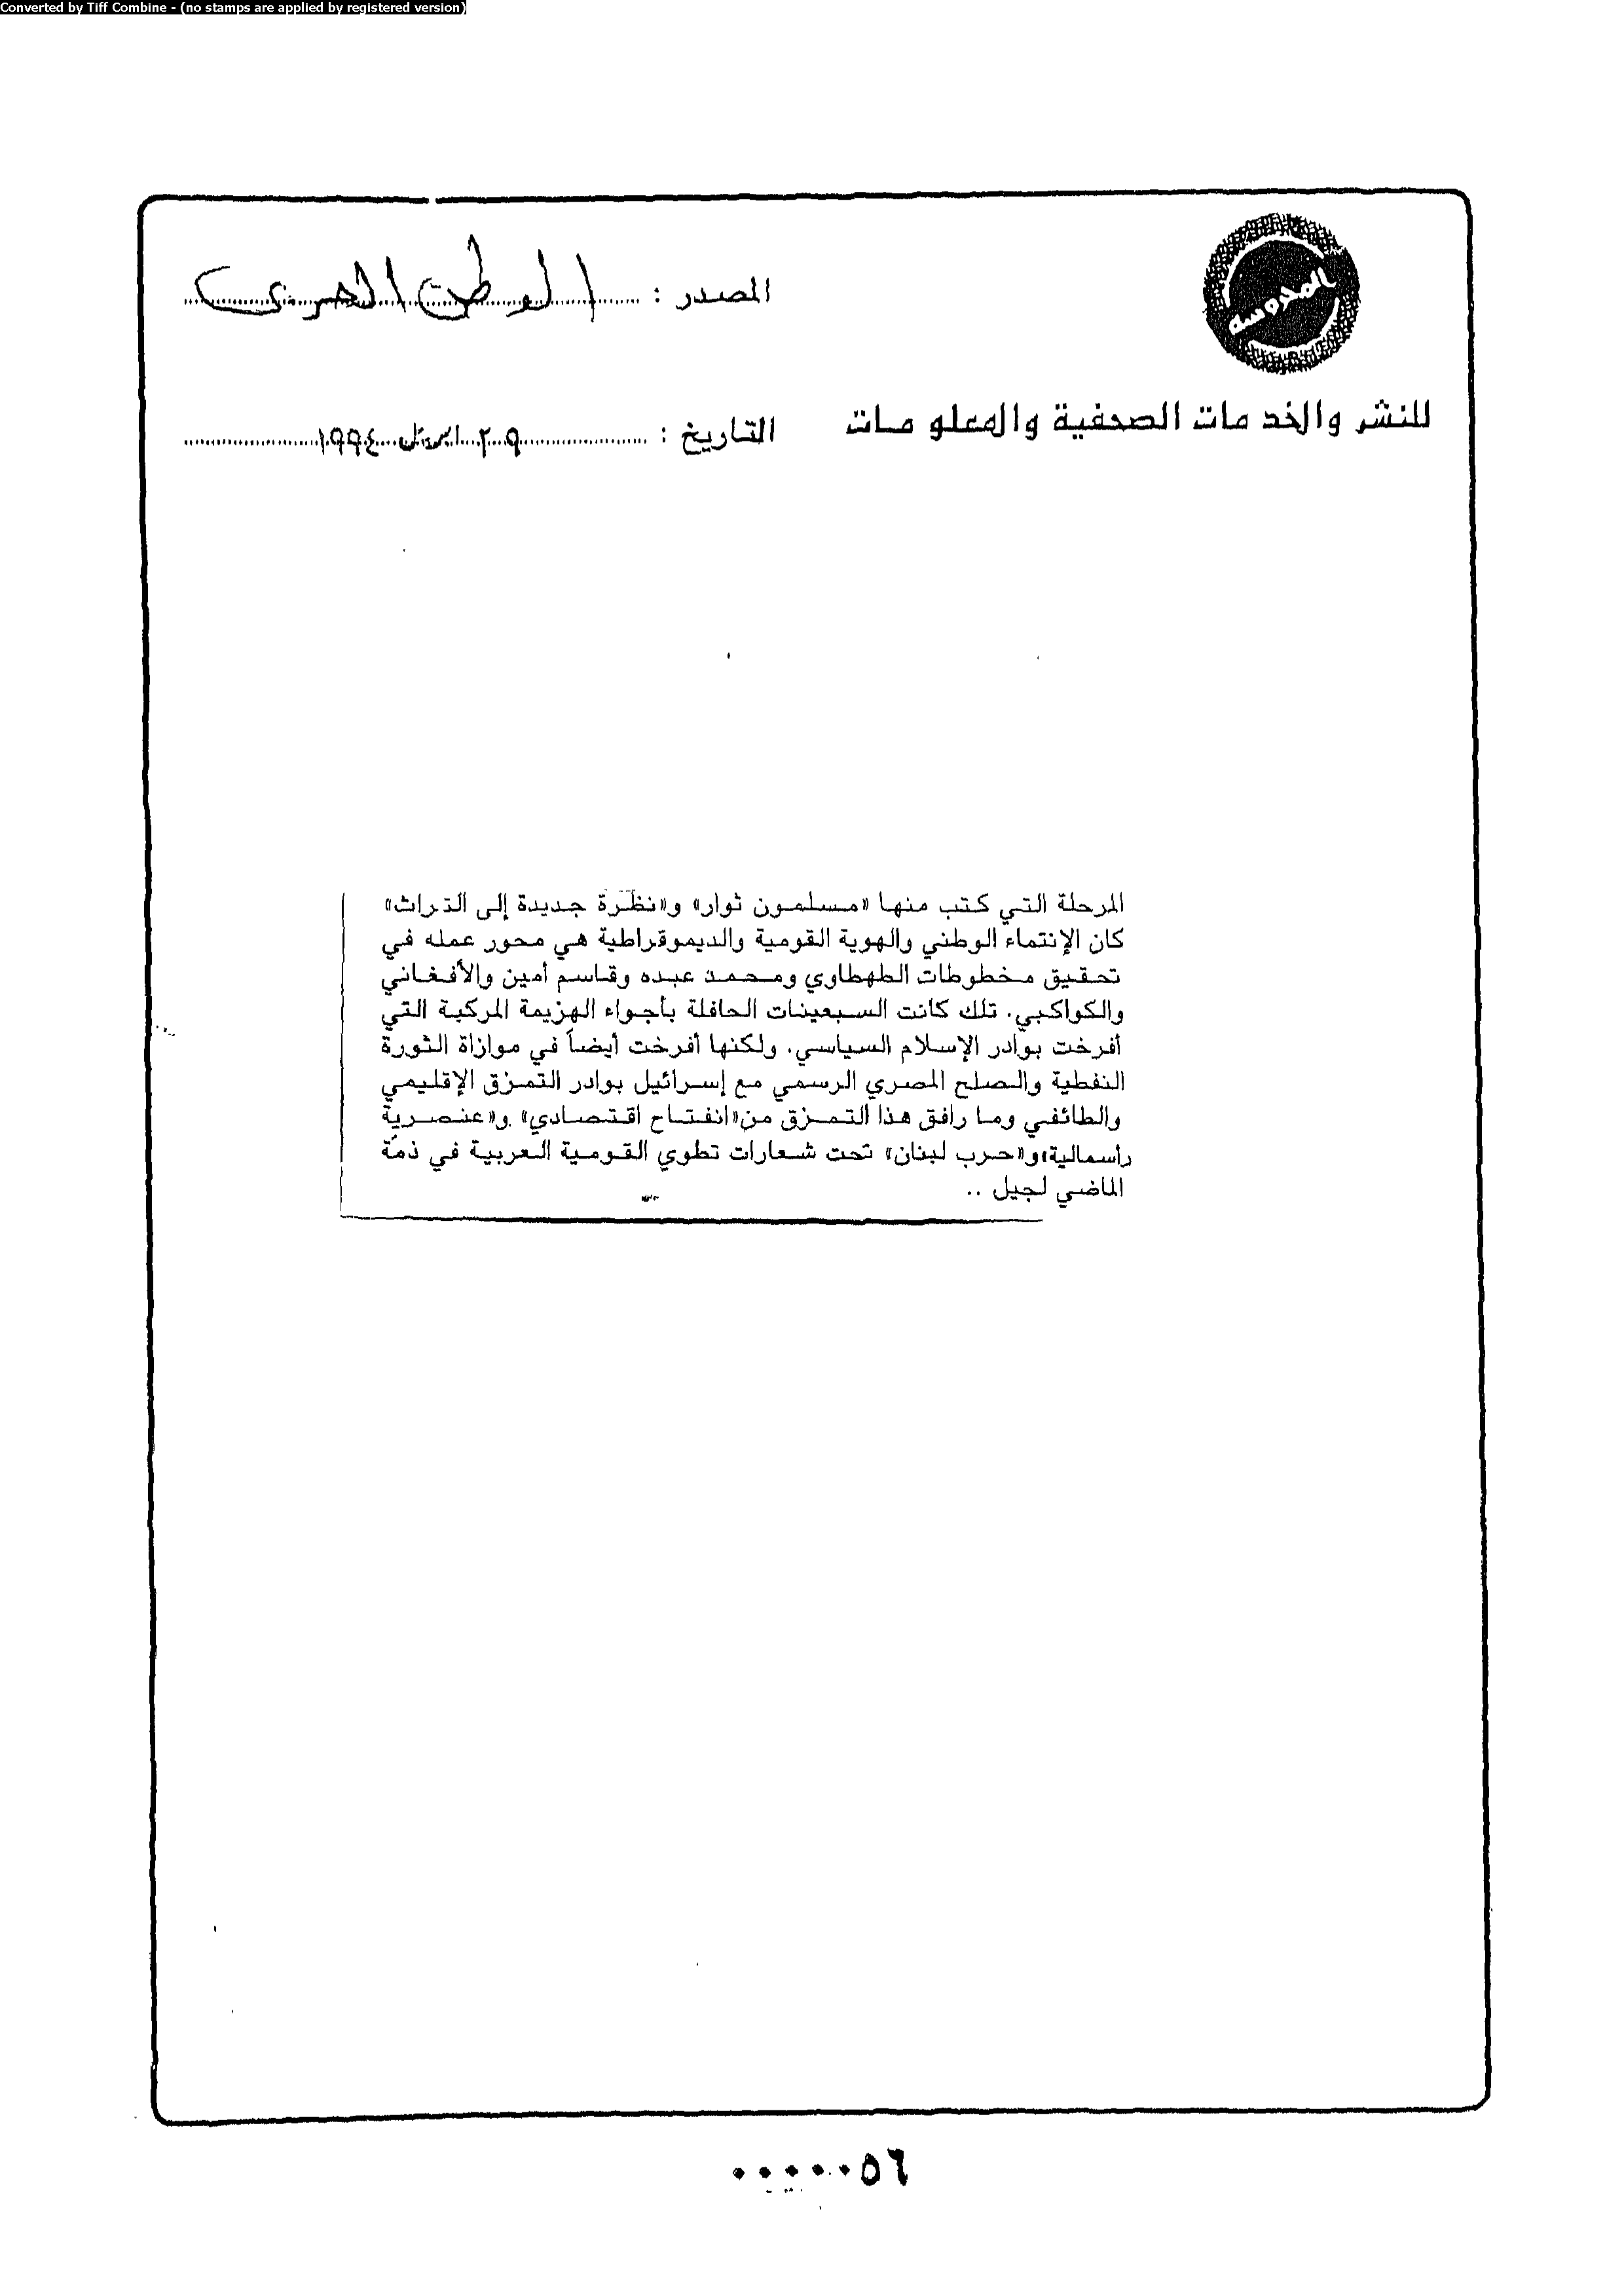 Converted by Tiff Combine - (no stamps are applied by registered version)
المحروسة
المصدر : الوطن العربى
للنشر والخدمات الصحفية والمعلومات
التاريخ : ٢٩ ابريل ١٩٩٤
المرحلة التي كتب منها «مسلمون ثوار» و«نظرة جديدة إلى التراث»
كان الإنتماء الوطني والهوية القومية والديموقراطية هي محور عمله في
تحقيق مخطوطات الطهطاوي ومحمد عبده وقاسم أمين والأفغاني
والكواكبي. تلك كانت السبعينات الحافلة بأجواء الهزيمة المركبة التي
أفرخت بوادر الإسلام السياسي. ولكنها أفرخت أيضاً في موازاة الثورة
النفطية والصلح المصري الرسمي مع إسرائيل بوادر التمزق الإقليمي
والطائفي وما رافق هذا التمزق من«انفتاح اقتصادي» و«عنصرية
رأسمالية»و«حرب لبنان» تحت شعارات تطوي القومية العربية في ذمّة
الماضي لجيل ..
٠٠٠٠٠٥٦